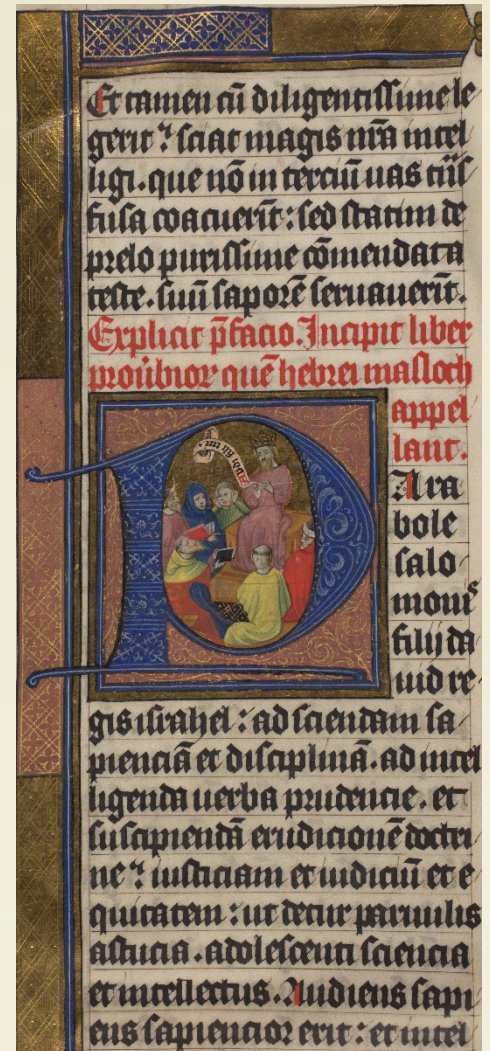 Et tamen cū diligentissime le
gerit ? sciat magis nr̄a intel
ligi . que nō in terciū uas trās
fusa coacuerīt : sed statim de
prelo purissime cōmendata
teste . suū saporē seruauerīt .
Explicit p̄facio . Incipit liber
proub̄ior quē hebrei masloth
appel
lant .
audi fili mi
P Ara
bole
salo
monis
filij da
uid re
gis israhel : ad sciendam sa
pienciā et disciplinā . ad intel
ligenda uerba prudencie . et
suscipiendā erudicionē doctri
ne ? iusticiam et iudiciū et e
quitatem : ut detur paruulis
astucia . adolescenti sciencia
et intellectus . Audiens sapi
ens sapiencior erit : et intel